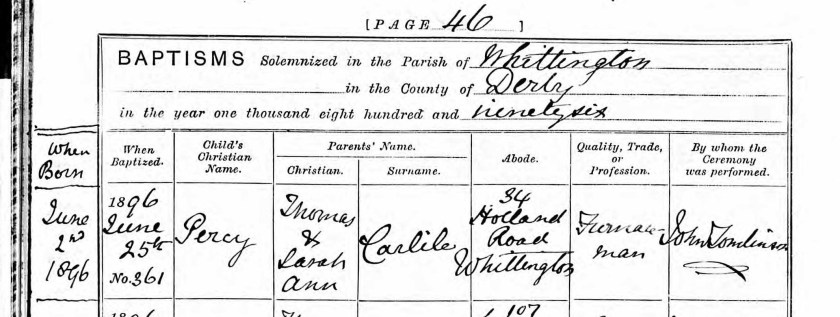 [PAGE 46 ]
BAPTISMS Solemnized in the Parish of Whittington
in the County of Derby
in the year one thousand eight hundred and ninety six
When Born
When Baptized.
Child's Christian Name.
Parents' Name.
Christian.
Surname.
Abode.
Quality, Trade, or Profession.
By whom the Ceremony was performed.
June 2nd 1896
1896 June 25th No. 361
Percy
Thomas & Sarah Ann
Carlile
34 Holland Road Whittington
Furnace-man
John Tomlinson
107